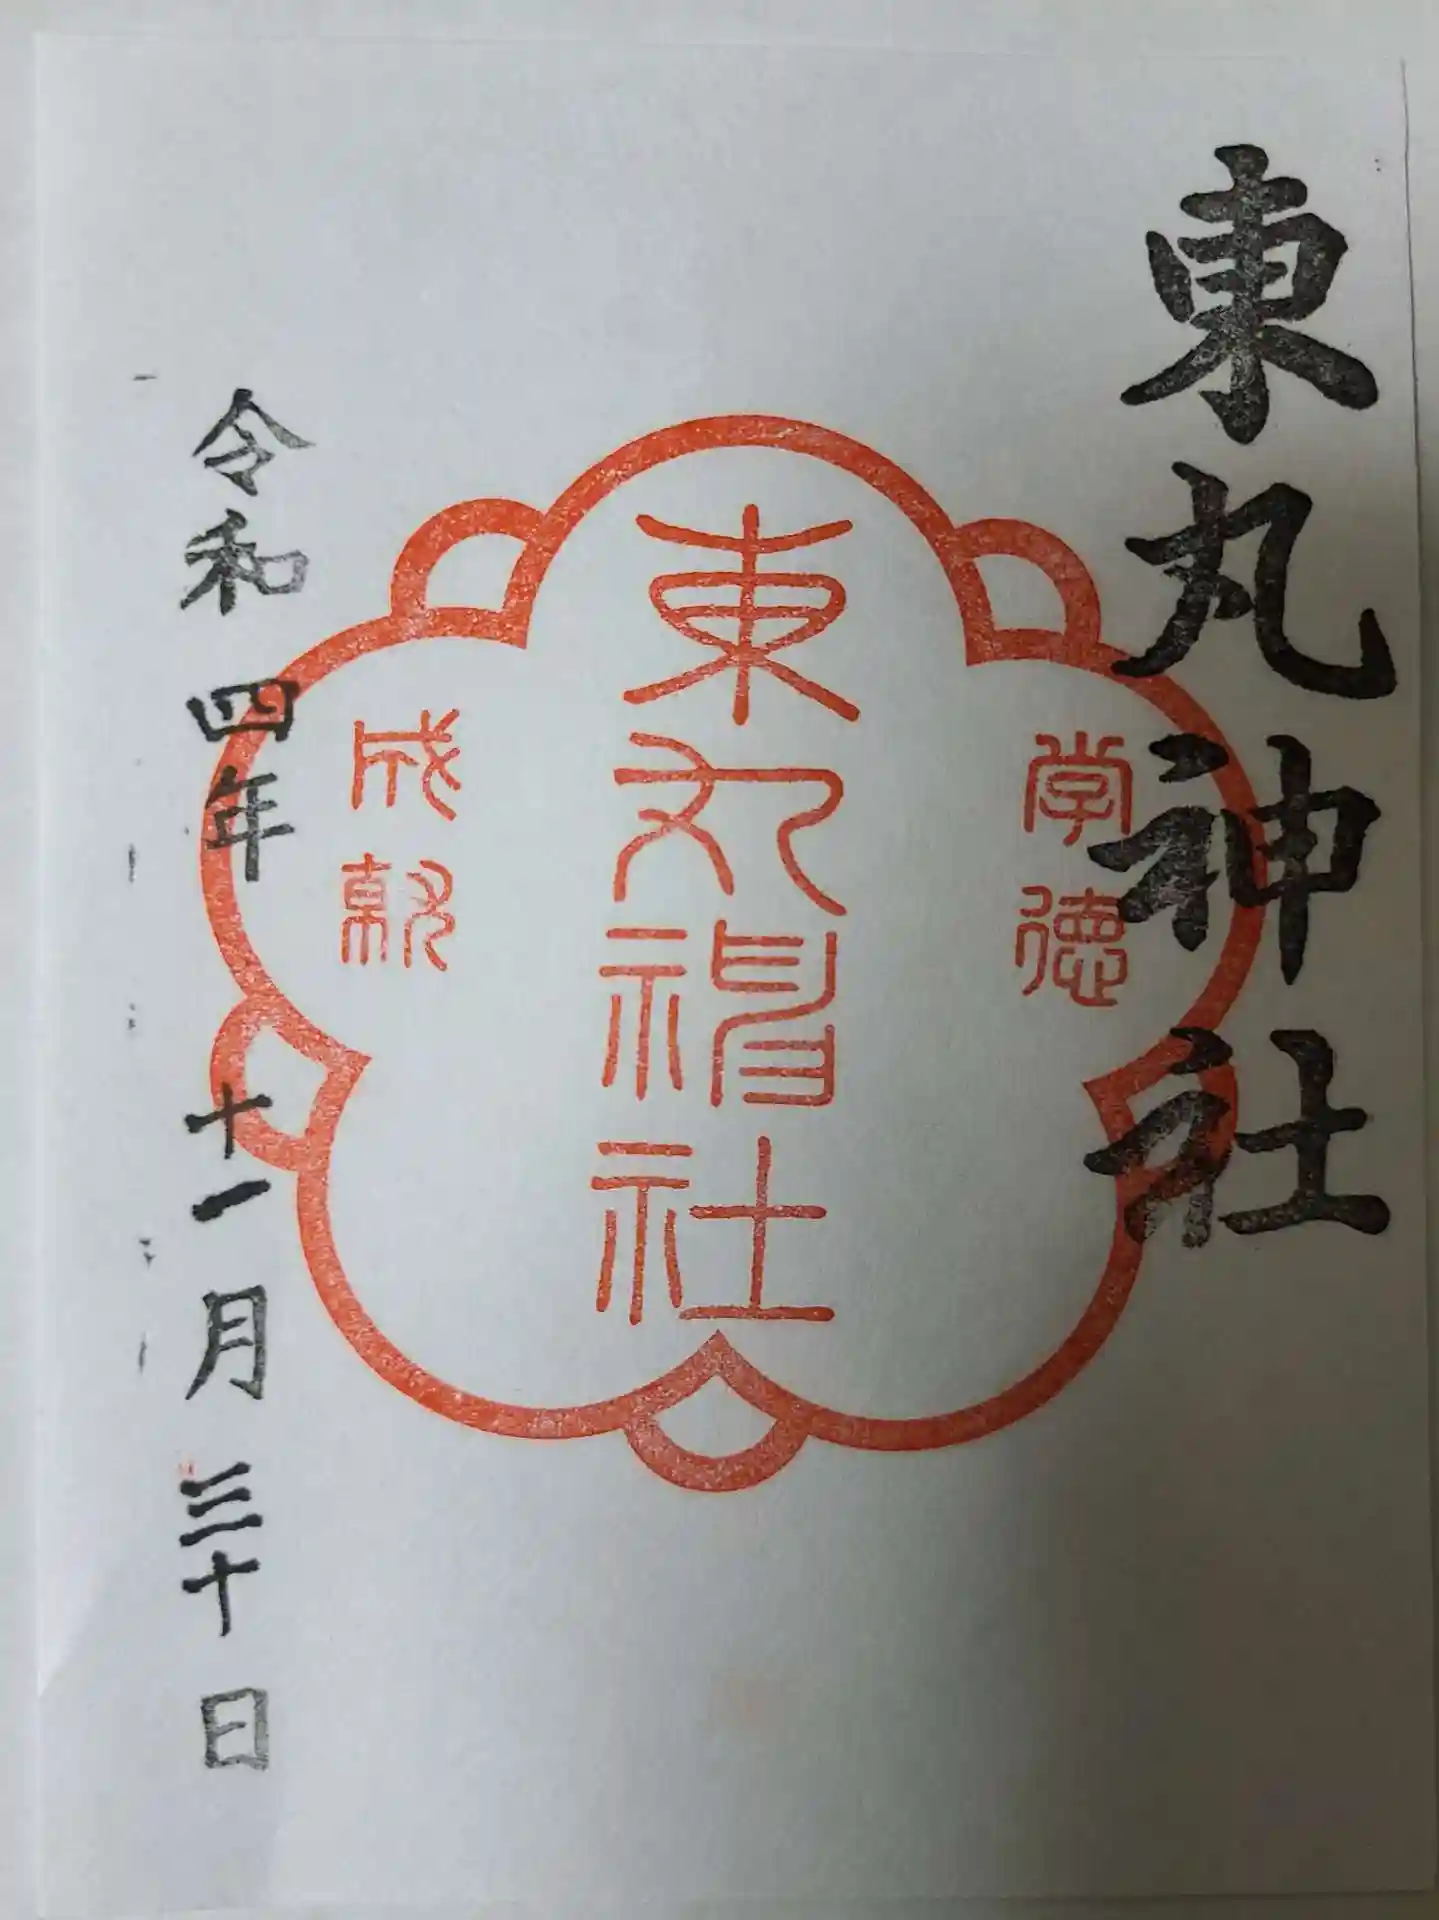 東丸神社
学徳
東丸神社
成就
令和四年十一月三十日